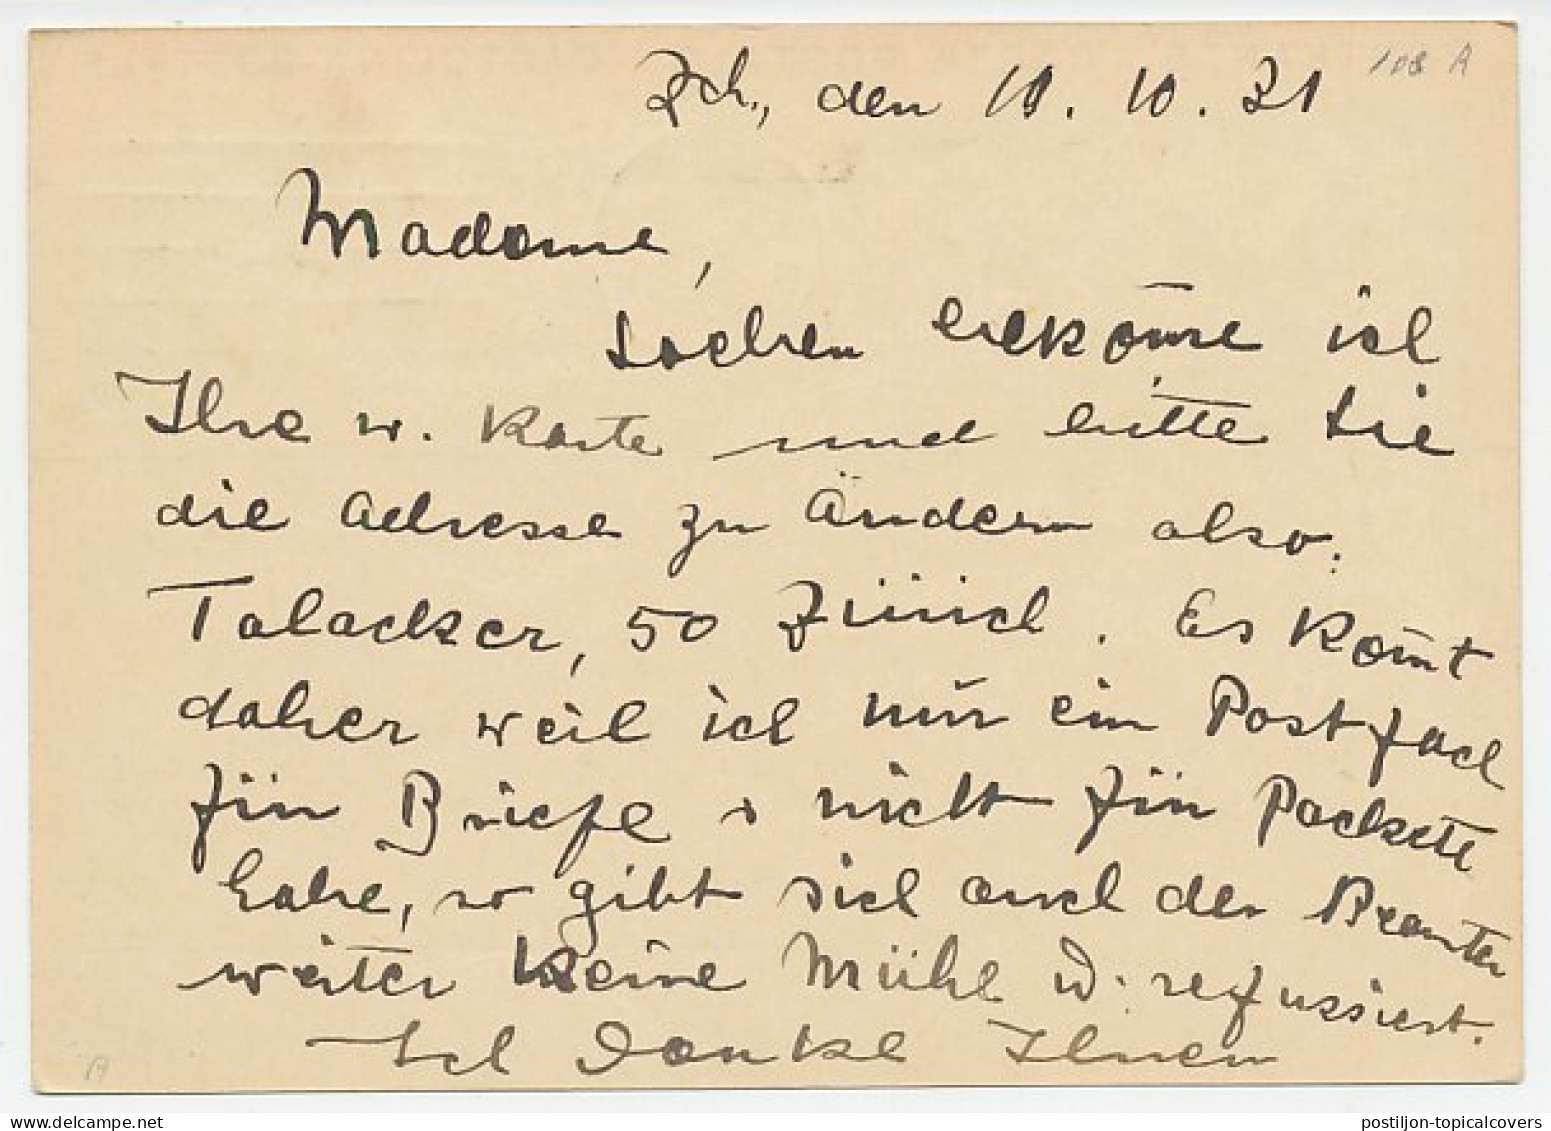 Zch., den 10. 10. 31
108 A
Madame,
Soeben bekom̄e ich
Ihre w. Karte und bitte Sie
die Adresse zu ändern also:
Talacker, 50 Zürich. Es kom̄t
daher weil ich nur ein Postfach
für Briefe & nicht für Packete
habe, so gibt sich auch der Beamter
weiter keine Mühe u. refussiert.
Ich danke Ihnen
A
delcampe.net
postiljon-topicalcovers